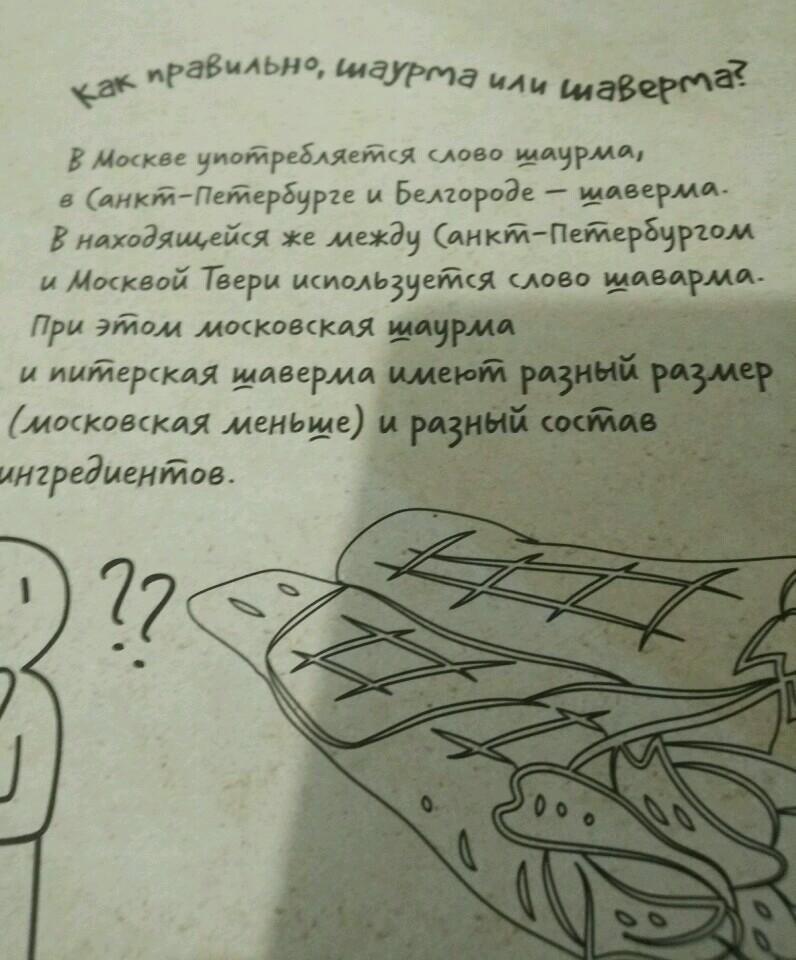 Как правильно, шаурма или шаверма?
В Москве употребляется слово шаурма,
в Санкт-Петербурге и Белгороде — шаверма.
В находящейся же между Санкт-Петербургом
и Москвой Твери используется слово шаварма.
При этом московская шаурма
и питерская шаверма имеют разный размер
(московская меньше) и разный состав
ингредиентов.
??